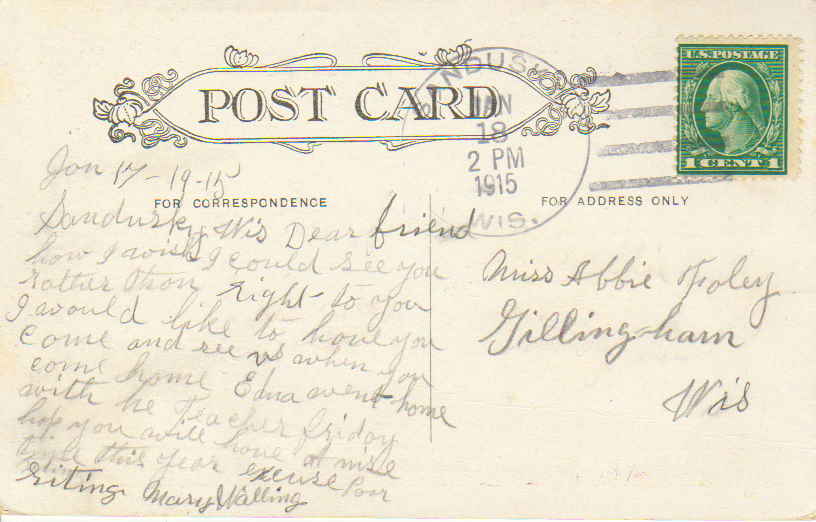 POST CARD
SANDUSKY
JAN
18
2 PM
1915
WIS.
U.S. POSTAGE
1 CENT 1
Jan 17-19-15
FOR CORRESPONDENCE
FOR ADDRESS ONLY
Sandusky Wis Dear friend
how I wish I could see you
rather than right to you
I would like to have you
come and see us when you
come home Edna went home
with he Teacher friday
hope you will have a nise
time this year excuse Poor
riting Mary Walling
Miss Abbie Foley
Gillingham
Wis